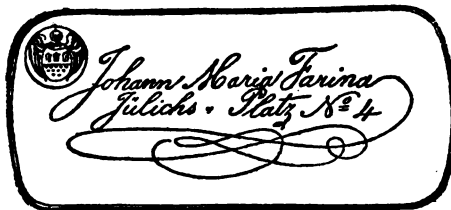 Johann Maria Farina
Jülichs • Platz No 4